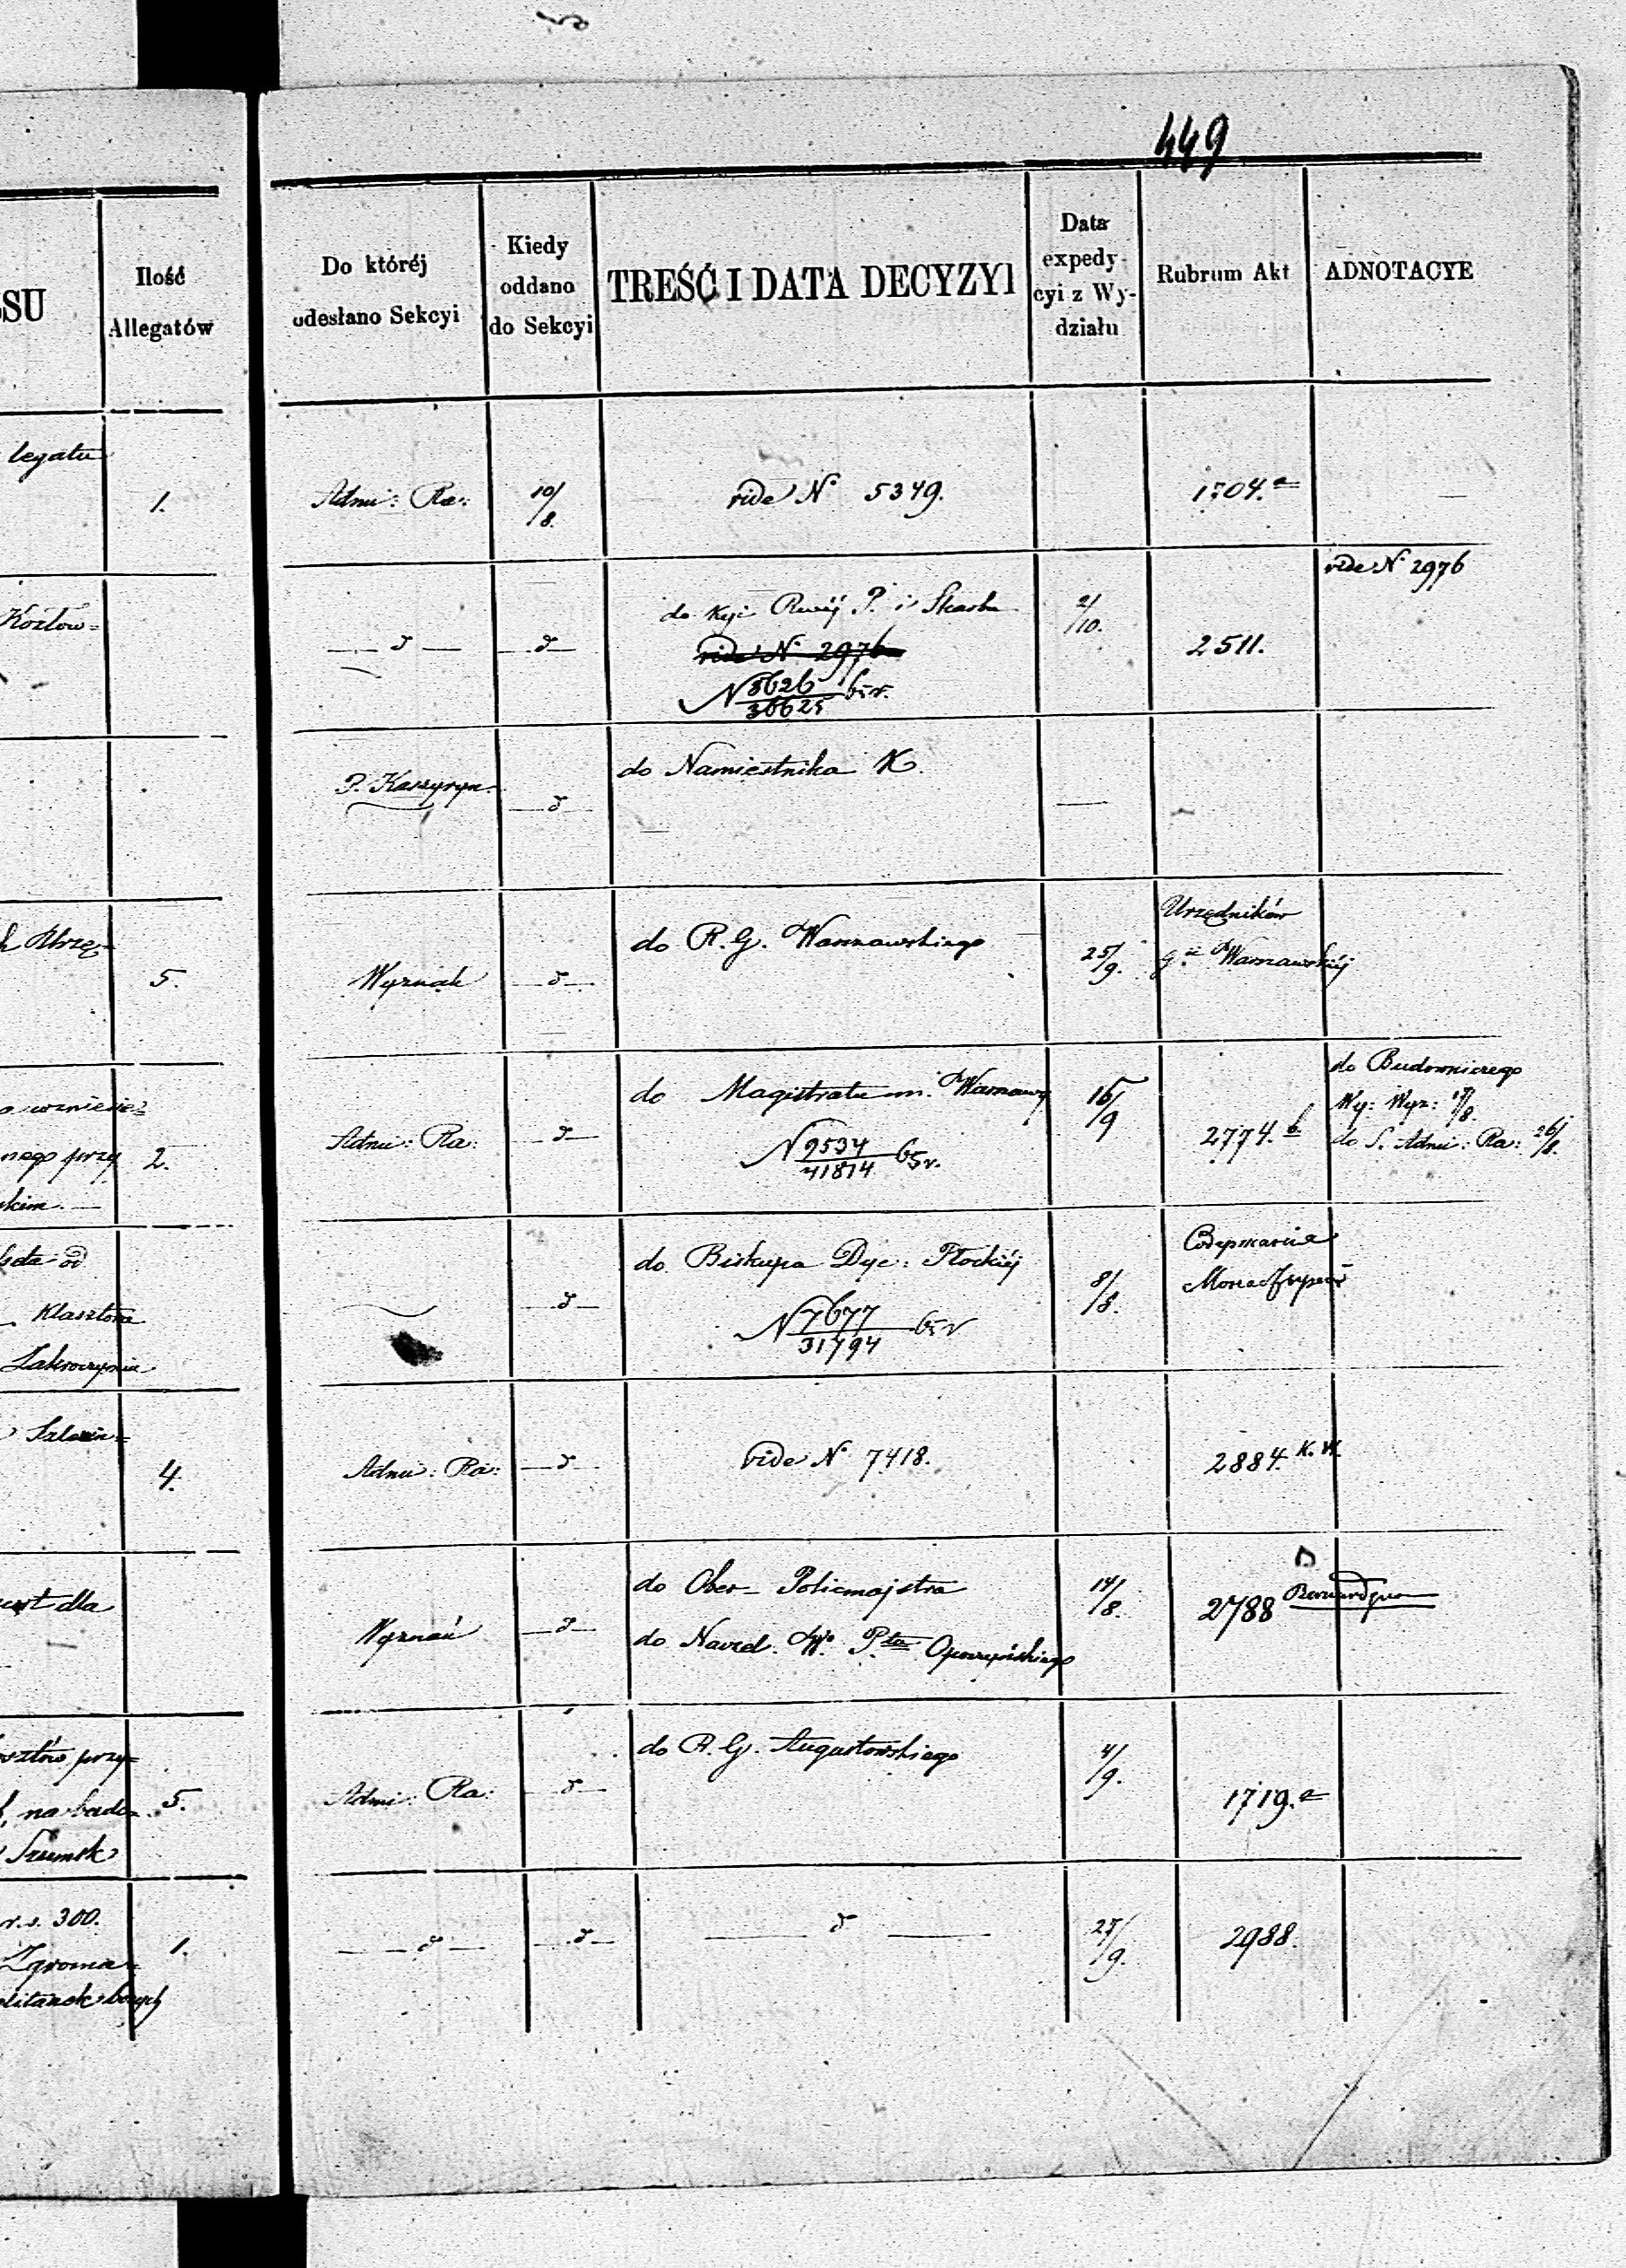 449
SU
Ilość
Allegatów
Do któréj
odesłano Sekcyi
Kiedy
oddano
do Sekcyi
TREŚĆ I DATA DECYZYI
Data
expedy-
cyi z Wy-
działu
Rubrum Akt
ADNOTACYE
legatu
1.
Admi: Ra:
10/8.
vide N° 5349.
1704. a
—
Kozłow=
— d —
— d —
do Kyi Rwéj P. i Skarbu
vide N° 2976
N 8626/36625 b. r.
2/10.
2511.
vide N° 2976
P. Kaszyryn.
— d —
do Namiestnika K.
—
5.
Wyznań
— d —
do R. G. Warszawskiego
25/9.
Urzędników
Gii Warszawskiéj
nego przy
skim. —
2.
Admi: Ra:
— d —
do Magistratu m. Warszawy
N 9534/41874 b. r.
16/9
2774. b
do Budowniczego
Wy: Wyz: 17/8.
do S. Admi: Ra: 26/8.
od
Klasztoru
Zakroczymiu
— d —
do Biskupa Dyec: Płockiéj
N 7677/31794 b. r.
8/8.
4.
Admi: Ra:
— d —
vide N° 7418.
2884. K. W.
dla
Wyznań
— d —
do Ober-Policmajstra
do Nacz. Wo. Ptu Opoczyńskiego
14/8.
2788
przy=
na
Szumsk
5.
Admi: Ra:
— d —
do R. G. Augustowskiego
4/9.
1719. a
r. s. 300.
Zgroma=
1.
— d —
— d —
— d —
27/9.
2988.